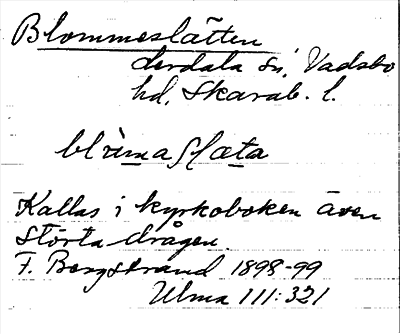 Blommeslätten
Lerdala sn, Vadsbo
hd, Skarab. l.
blòmaslæta
Kallas i kyrkoboken även
Störta drågen.
F. Bergstrand 1898-99
Ulma 111:321